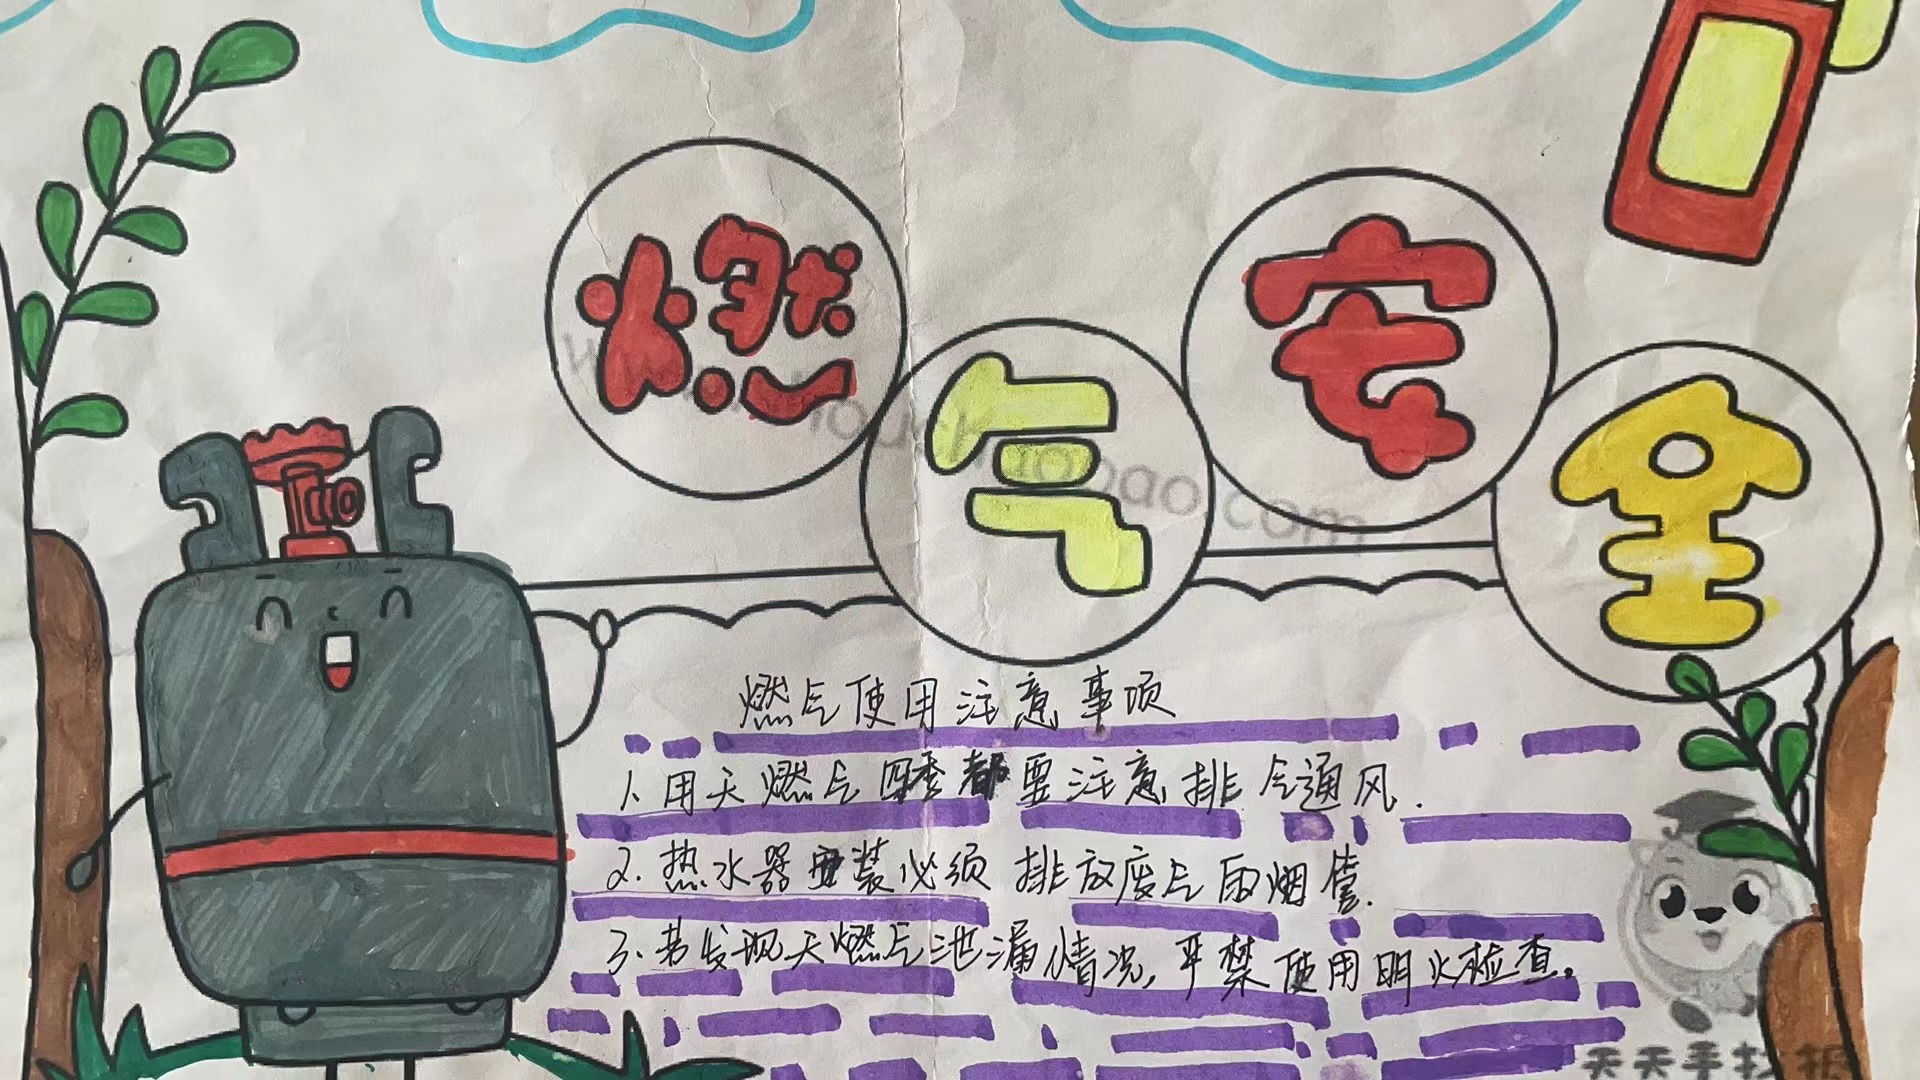 燃气安全
燃气使用注意事项
1.用天燃气四季都要注意排气通风.
2.热水器安装必须排放废气的烟管.
3.若发现天燃气泄漏情况,严禁使用明火检查。
天天手抄报